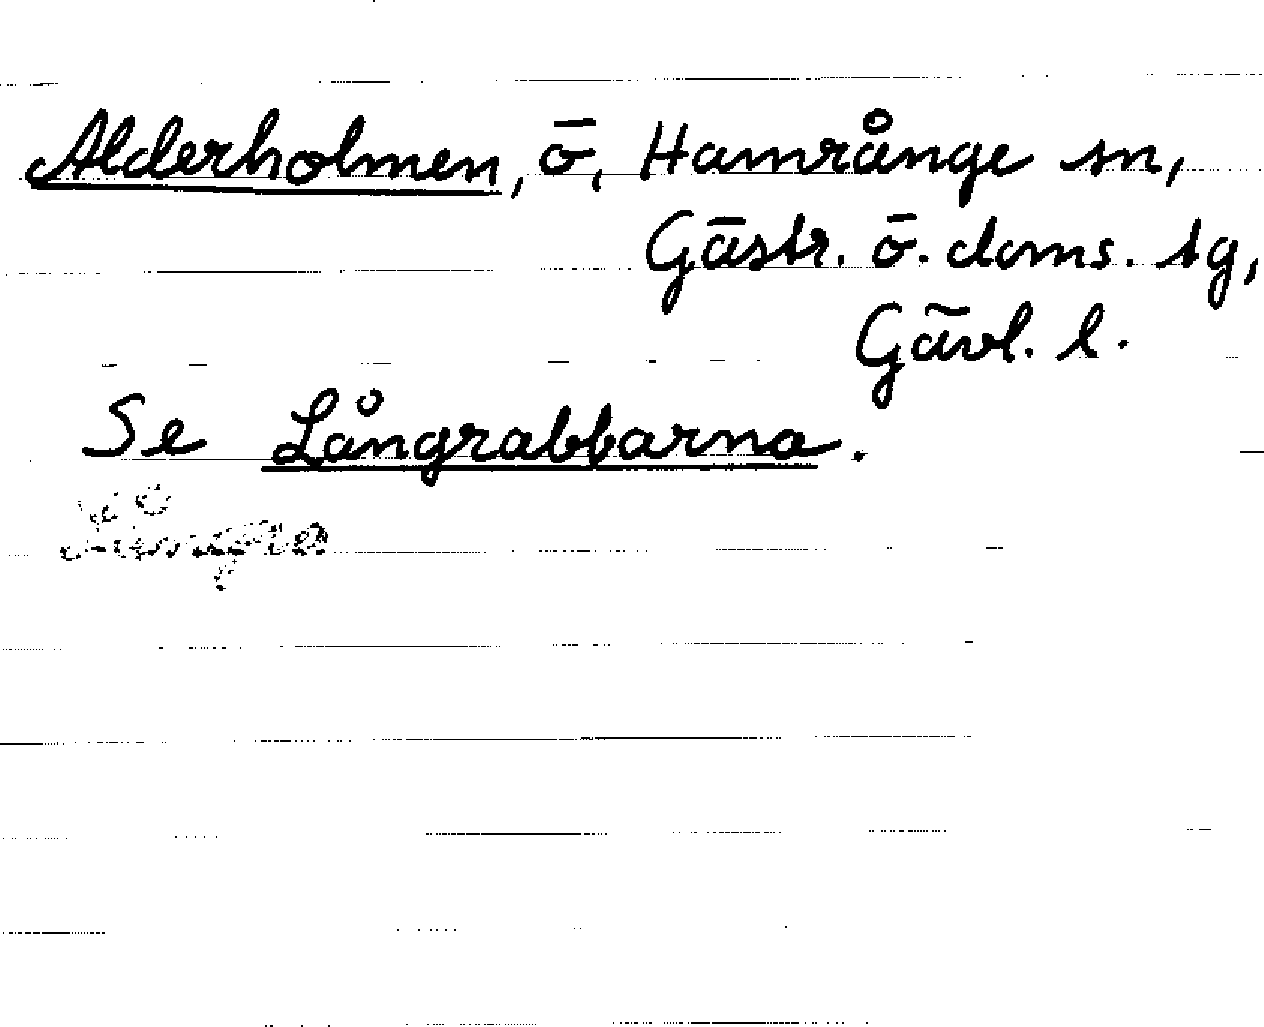 Alderholmen, ö, Hamrånge sn,
Gästr. ö. doms. tg,
Gävl. l.
Se Långrabbarna.